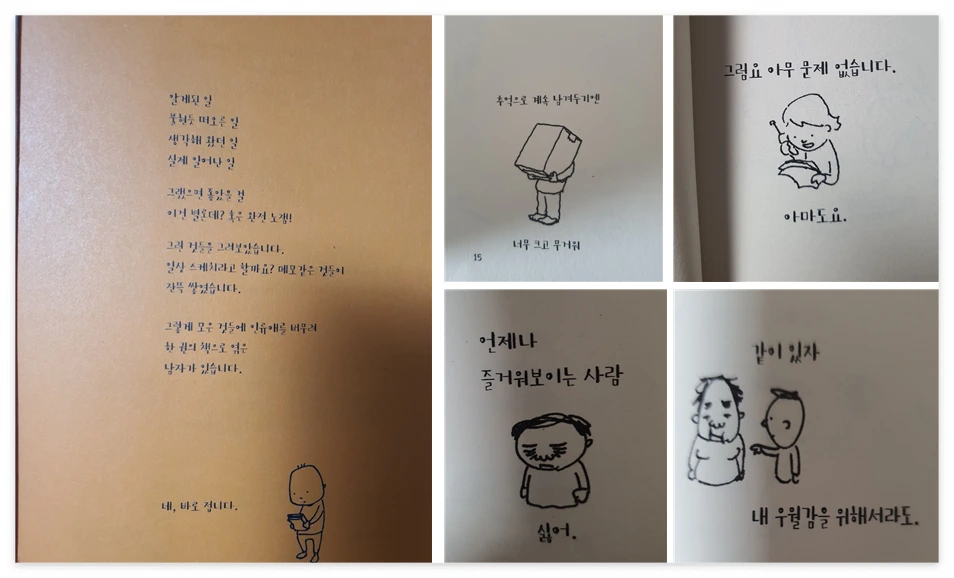 알게된 일
불현듯 떠오른 일
생각해 왔던 일
실제 일어난 일
그랬으면 좋았을 걸
이건 별론데? 혹은 완전 노잼!!
그런 것들을 그려보았습니다.
일상 스케치라고 할까요? 메모같은 것들이
잔뜩 쌓였습니다.
그렇게 모은 것들에 인류애를 버무려
한 권의 책으로 엮은
남자가 있습니다.
네, 바로 접니다.
추억으로 계속 남겨두기엔
너무 크고 무거워
15
그럼요 아무 문제 없습니다.
아마도요.
언제나
즐거워보이는 사람
싫어.
같이 있자
내 우월감을 위해서라도.